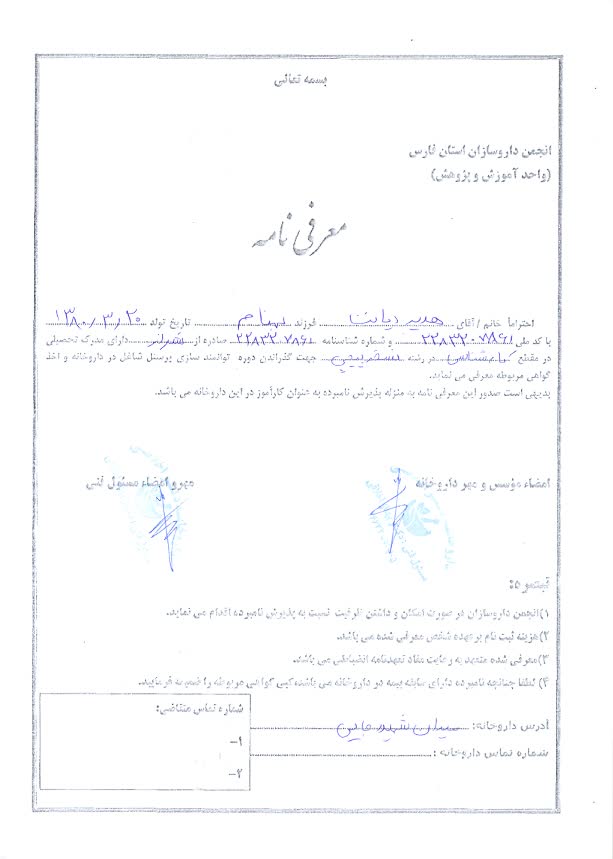 بسمه تعالی
انجمن داروسازان استان فارس
(واحد آموزش و پژوهش)
معرفی نامه
احتراماً خانم / آقای هدیه دیانت فرزند بهنام تاریخ تولد ۱۳۸۰/۳/۲۰
با کد ملی و شماره شناسنامه صادره از شیراز دارای مدرک تحصیلی
در مقطع کارشناسی در رشته جهت گذراندن دوره توانمند سازی پرسنل شاغل در داروخانه و اخذ
گواهی مربوطه معرفی می نماید.
بدیهی است صدور این معرفی نامه به منزله پذیرش نامبرده به عنوان کارآموز در این داروخانه می باشد.
امضاء مؤسس و مهر داروخانه مهر و امضاء مسئول فنی
تبصره ۵:
۱)انجمن داروسازان در صورت امکان و داشتن ظرفیت نسبت به پذیرش نامبرده اقدام می نماید.
۲)هزینه ثبت نام بر عهده شخص معرفی شده می باشد.
۳)معرفی شده متعهد به رعایت مفاد تعهدنامه انضباطی می باشد.
۴) لطفا چنانچه نامبرده دارای سابقه بیمه در داروخانه می باشد، کپی گواهی مربوطه را ضمیمه فرمایید.
شماره تماس متقاضی:
۱-
۲-
آدرس داروخانه:
شماره تماس داروخانه :